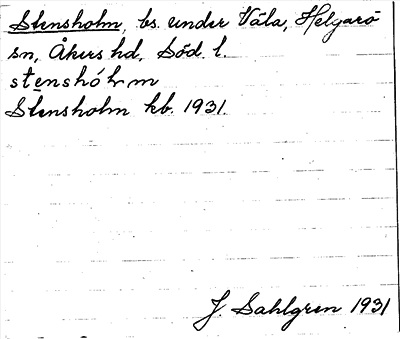 Stensholm, bs. under Våla, Helgarö
sn, Åkers hd, Söd. l.
stenshóľm
Stensholm kb. 1931.
J. Sahlgren 1931